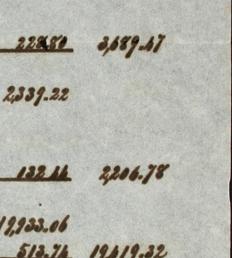 228.80 3,689.47
2,339.22
132.44 2,206.78
19,933.06
513.74 19,419.32